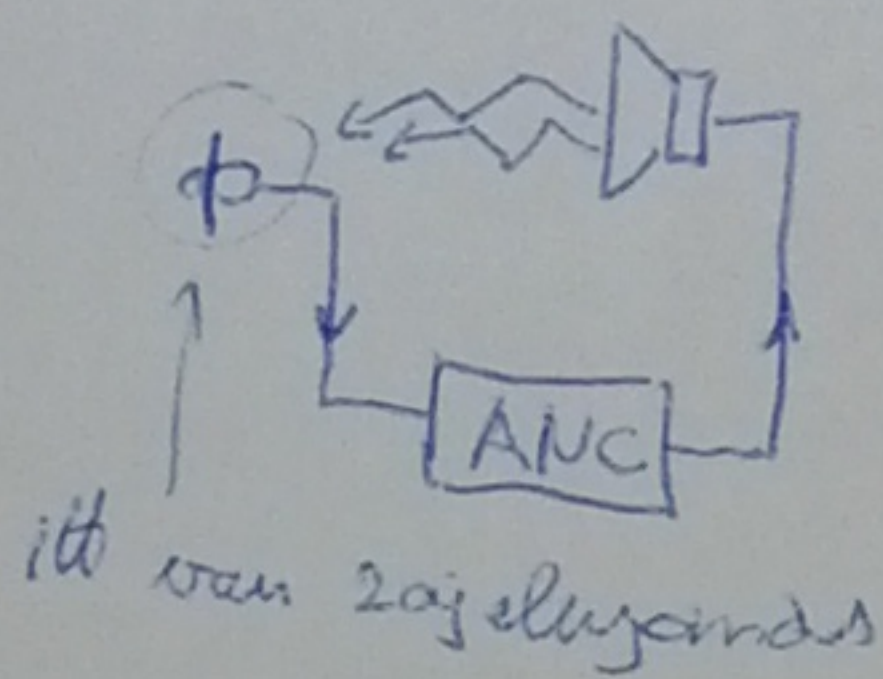 ANC
itt van zajelnyomás